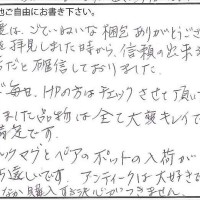 他ご自由にお書き下さい。
度は、ごていねいな梱包ありがとうござ
を拝見しました時から、信頼の出来る
店だと確信しておりました。
で毎日、HPの方はチェックさせて頂い
ました品物は全て大変キレイで
満足です。
ウマグとペアのポットの入荷が
ち遠しいです。アンティークは大好きで
なか購入する決心がつきません。